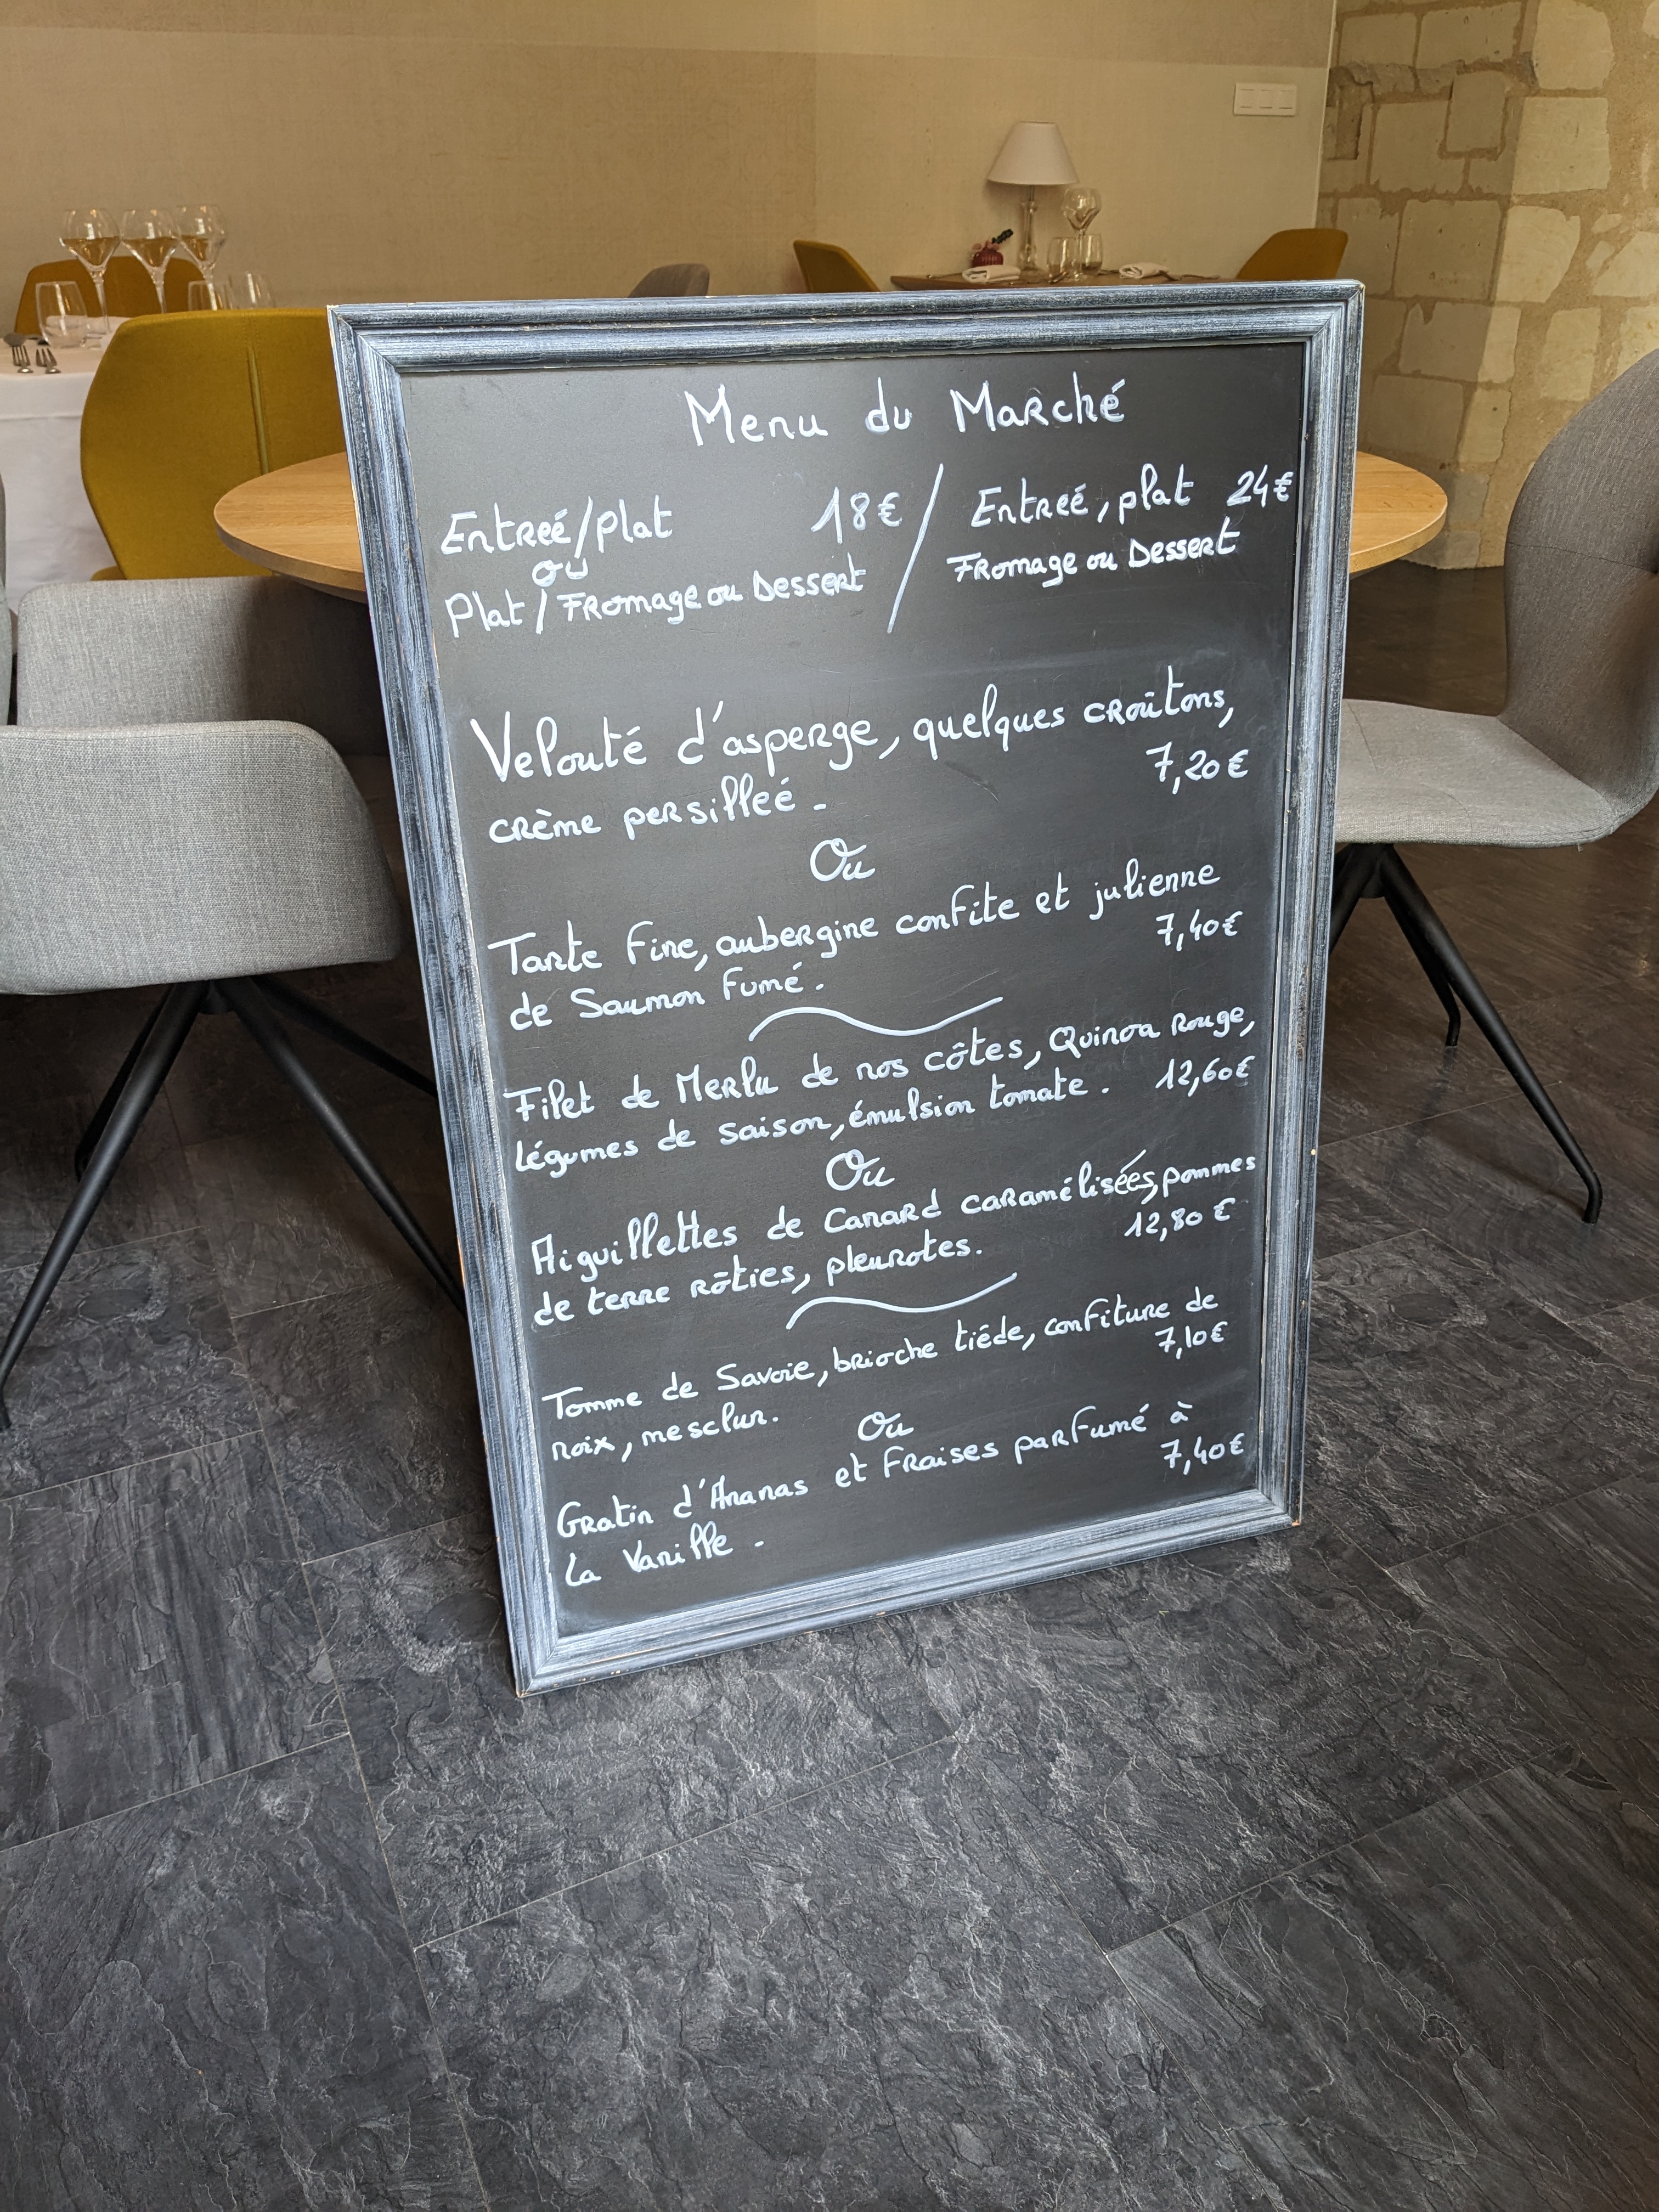 Menu du Marché
Entreé/plat 18€ / Entreé, plat 24€
ou
Plat/Fromage ou Dessert Fromage ou Dessert
Velouté d'asperge, quelques croûtons,
crème persilleé. 7,20€
Ou
Tarte fine, aubergine confite et julienne
de Saumon fumé. 7,40€
Filet de Merlu de nos côtes, Quinoa Rouge,
légumes de saison, émulsion tomate. 12,60€
Ou
Aiguillettes de Canard caramélisées, pommes
de terre rôties, pleurotes. 12,80€
Tomme de Savoie, brioche tiéde, confiture de
noix, mesclun. 7,10€
Ou
Gratin d'Ananas et Fraises parfumé à
La Vanille. 7,40€